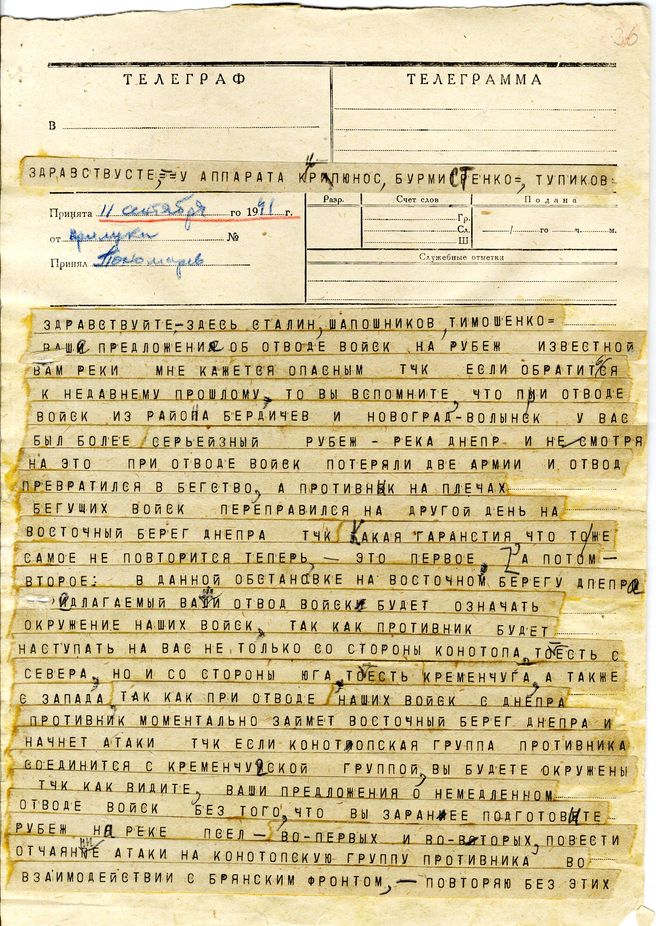 36
ТЕЛЕГРАФ ТЕЛЕГРАММА
В
ЗДРАВСТВУСТЕ,==У АППАРАТА КИРПЮНОС, БУРМИСТЕНКО=, ТУПИКОВ=
Принята 11 сентября го 1941 г.
от Прилуки №
Принял Пономарев
Разр. Счет слов Подана
Гр.
Сл. / го ч. м.
Ш
Служебные отметки
ЗДРАВСТВУЙТЕ-ЗДЕСЬ СТАЛИН, ШАПОШНИКОВ, ТИМОШЕНКО=
ВАШИ ПРЕДЛОЖЕНИЯ ОБ ОТВОДЕ ВОЙСК НА РУБЕЖ ИЗВЕСТНОЙ
ВАМ РЕКИ МНЕ КАЖЕТСЯ ОПАСНЫМ ТЧК ЕСЛИ ОБРАТИТЬСЯ
К НЕДАВНЕМУ ПРОШЛОМУ, ТО ВЫ ВСПОМНИТЕ, ЧТО ПРИ ОТВОДЕ
ВОЙСК ИЗ РАЙОНА БЕРДИЧЕВ И НОВОГРАД-ВОЛЫНСК У ВАС
БЫЛ БОЛЕЕ СЕРЬЕЙЗНЫЙ РУБЕЖ - РЕКА ДНЕПР И НЕ СМОТРЯ
НА ЭТО ПРИ ОТВОДЕ ВОЙСК ПОТЕРЯЛИ ДВЕ АРМИИ И ОТВОД
ПРЕВРАТИЛСЯ В БЕГСТВО, А ПРОТИВНИК НА ПЛЕЧАХ
БЕГУЩИХ ВОЙСК ПЕРЕПРАВИЛСЯ НА ДРУГОЙ ДЕНЬ НА
ВОСТОЧНЫЙ БЕРЕГ ДНЕПРА ТЧК КАКАЯ ГАРАНСТИЯ ЧТО ТОЖЕ
САМОЕ НЕ ПОВТОРИТСЯ ТЕПЕРЬ, — ЭТО ПЕРВОЕ, А ПОТОМ —
ВТОРОЕ: В ДАННОЙ ОБСТАНОВКЕ НА ВОСТОЧНОМ БЕРЕГУ ДНЕПРА
ИДЛАГАЕМЫЙ ВАМИ ОТВОД ВОЙСК БУДЕТ ОЗНАЧАТЬ
ОКРУЖЕНИЕ НАШИХ ВОЙСК, ТАК КАК ПРОТИВНИК БУДЕТ
НАСТУПАТЬ НА ВАС НЕ ТОЛЬКО СО СТОРОНЫ КОНОТОПА, ТОЕСТЬ С
СЕВЕРА, НО И СО СТОРОНЫ ЮГА, ТОЕСТЬ КРЕМЕНЧУГА, А ТАКЖЕ
С ЗАПАДА, ТАК КАК ПРИ ОТВОДЕ НАШИХ ВОЙСК С ДНЕПРА
ПРОТИВНИК МОМЕНТАЛЬНО ЗАЙМЕТ ВОСТОЧНЫЙ БЕРЕГ ДНЕПРА И
НАЧНЕТ АТАКИ ТЧК ЕСЛИ КОНОТОПСКАЯ ГРУППА ПРОТИВНИКА
СОЕДИНИТСЯ С КРЕМЕНЧУГСКОЙ ГРУППОЙ, ВЫ БУДЕТЕ ОКРУЖЕНЫ
ТЧК КАК ВИДИТЕ, ВАШИ ПРЕДЛОЖЕНИЯ О НЕМЕДЛЕННОМ
ОТВОДЕ ВОЙСК БЕЗ ТОГО, ЧТО ВЫ ЗАРАНЕЕ ПОДГОТОВИТЕ
РУБЕЖ НА РЕКЕ ПСЕЛ — ВО-ПЕРВЫХ И ВО-ВТОРЫХ, ПОВЕСТИ
ОТЧАЯННЫЕ АТАКИ НА КОНОТОПСКУЮ ГРУППУ ПРОТИВНИКА ВО
ВЗАИМОДЕЙСТВИИ С БРЯНСКИМ ФРОНТОМ, — ПОВТОРЯЮ БЕЗ ЭТИХ